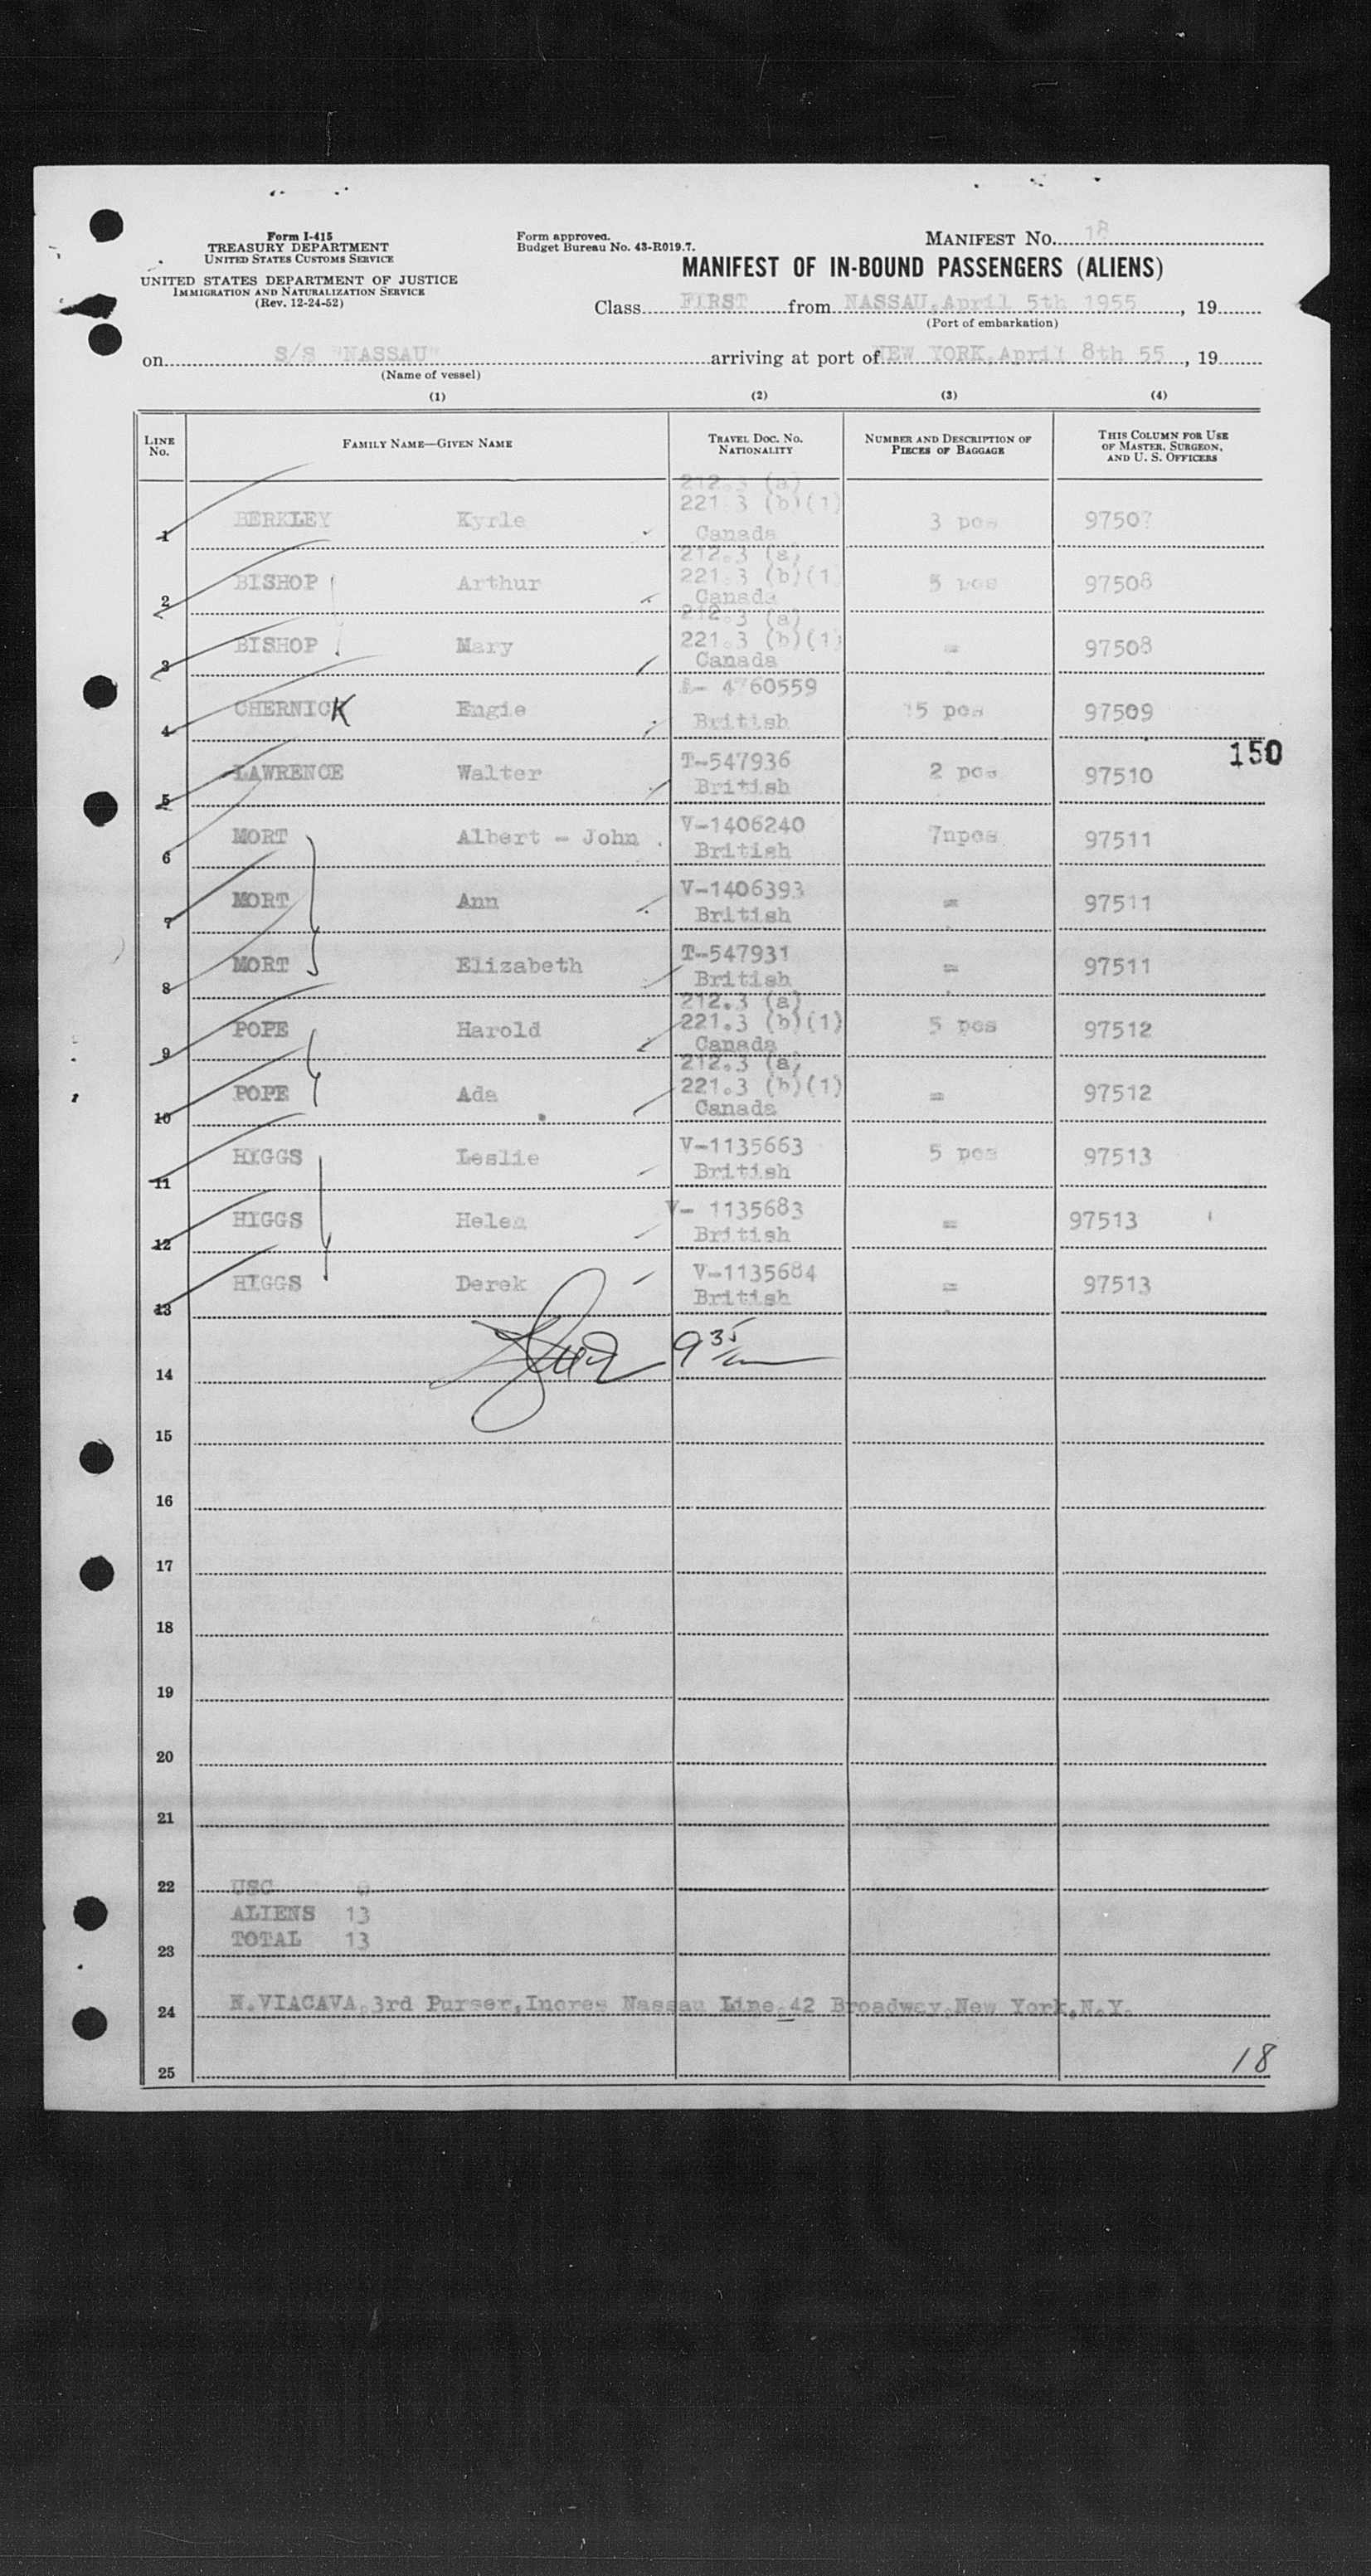 Form I-415
TREASURY DEPARTMENT
UNITED STATES CUSTOMS SERVICE
UNITED STATES DEPARTMENT OF JUSTICE
IMMIGRATION AND NATURALIZATION SERVICE
(Rev. 12-24-52)
Form approved.
Budget Bureau No. 43-R019.7.
MANIFEST NO. 18
MANIFEST OF IN-BOUND PASSENGERS (ALIENS)
Class FIRST from NASSAU, April 5th 1955, 19
(Port of embarkation)
on S/S "NASSAU" arriving at port of NEW YORK, April 8th 55, 19
(Name of vessel)
(1) (2) (3) (4)
LINE No. FAMILY NAME—GIVEN NAME TRAVEL DOC. NO. NATIONALITY NUMBER AND DESCRIPTION OF PIECES OF BAGGAGE THIS COLUMN FOR USE OF MASTER, SURGEON, AND U. S. OFFICERS
212.3 (a)
221.3 (b)(1)
1 BERKLEY Kyrle Canada 3 pcs 97507
212.3 (a)
221.3 (b)(1
2 BISHOP Arthur Canada 5 pcs 97508
212.3 (a)
221.3 (b)(1)
3 BISHOP Mary Canada = 97508
A- 4760559
4 CHERNICK Engie British 15 pcs 97509
150
T-547936
5 LAWRENCE Walter British 2 pcs 97510
V-1406240
6 MORT Albert - John British 7npcs 97511
V-1406393
7 MORT Ann British = 97511
T-547931
8 MORT Elizabeth British = 97511
212.3 (a)
221.3 (b)(1)
9 POPE Harold Canada 5 pcs 97512
212.3 (a)
221.3 (b)(1)
10 POPE Ada Canada = 97512
V-1135663
11 HIGGS Leslie British 5 pcs 97513
V- 1135683
12 HIGGS Helen British = 97513
V-1135684
13 HIGGS Derek British = 97513
9 35
14
15
16
17
18
19
20
21
22 USC 0
ALIENS 13
TOTAL 13
23
24 N.VIACAVA.3rd Purser,Incres Nassau Line.42 Broadway.New York,N.Y.
18
25